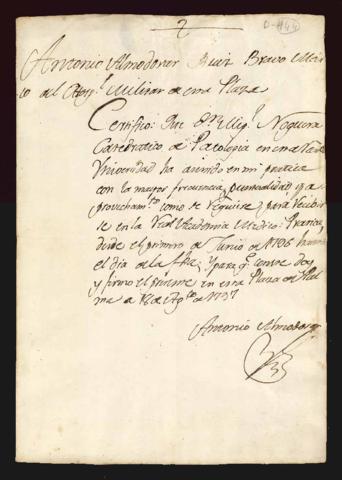 2
D-444
Antonio Almodovar Ruiz Bravo Medi
co del Hosp.l Militar de esta Plaza
Certifico: Que D.n Mig.l Noguera
Catedratico de Patologia en esta
Universidad ha asistido en mi practica
con la mayor frecuencia, puntualidad, y a
provecham.to como se requiere, para recibir
se en la Real Academia Medico-Practica,
desde el primero de Junio de 1796 hasta
el dia de la fha; y para q.e conste doy
y firmo el presente en esta Plaza de Pal
ma a 12 de Ag.to de 1797
Antonio Almodovar